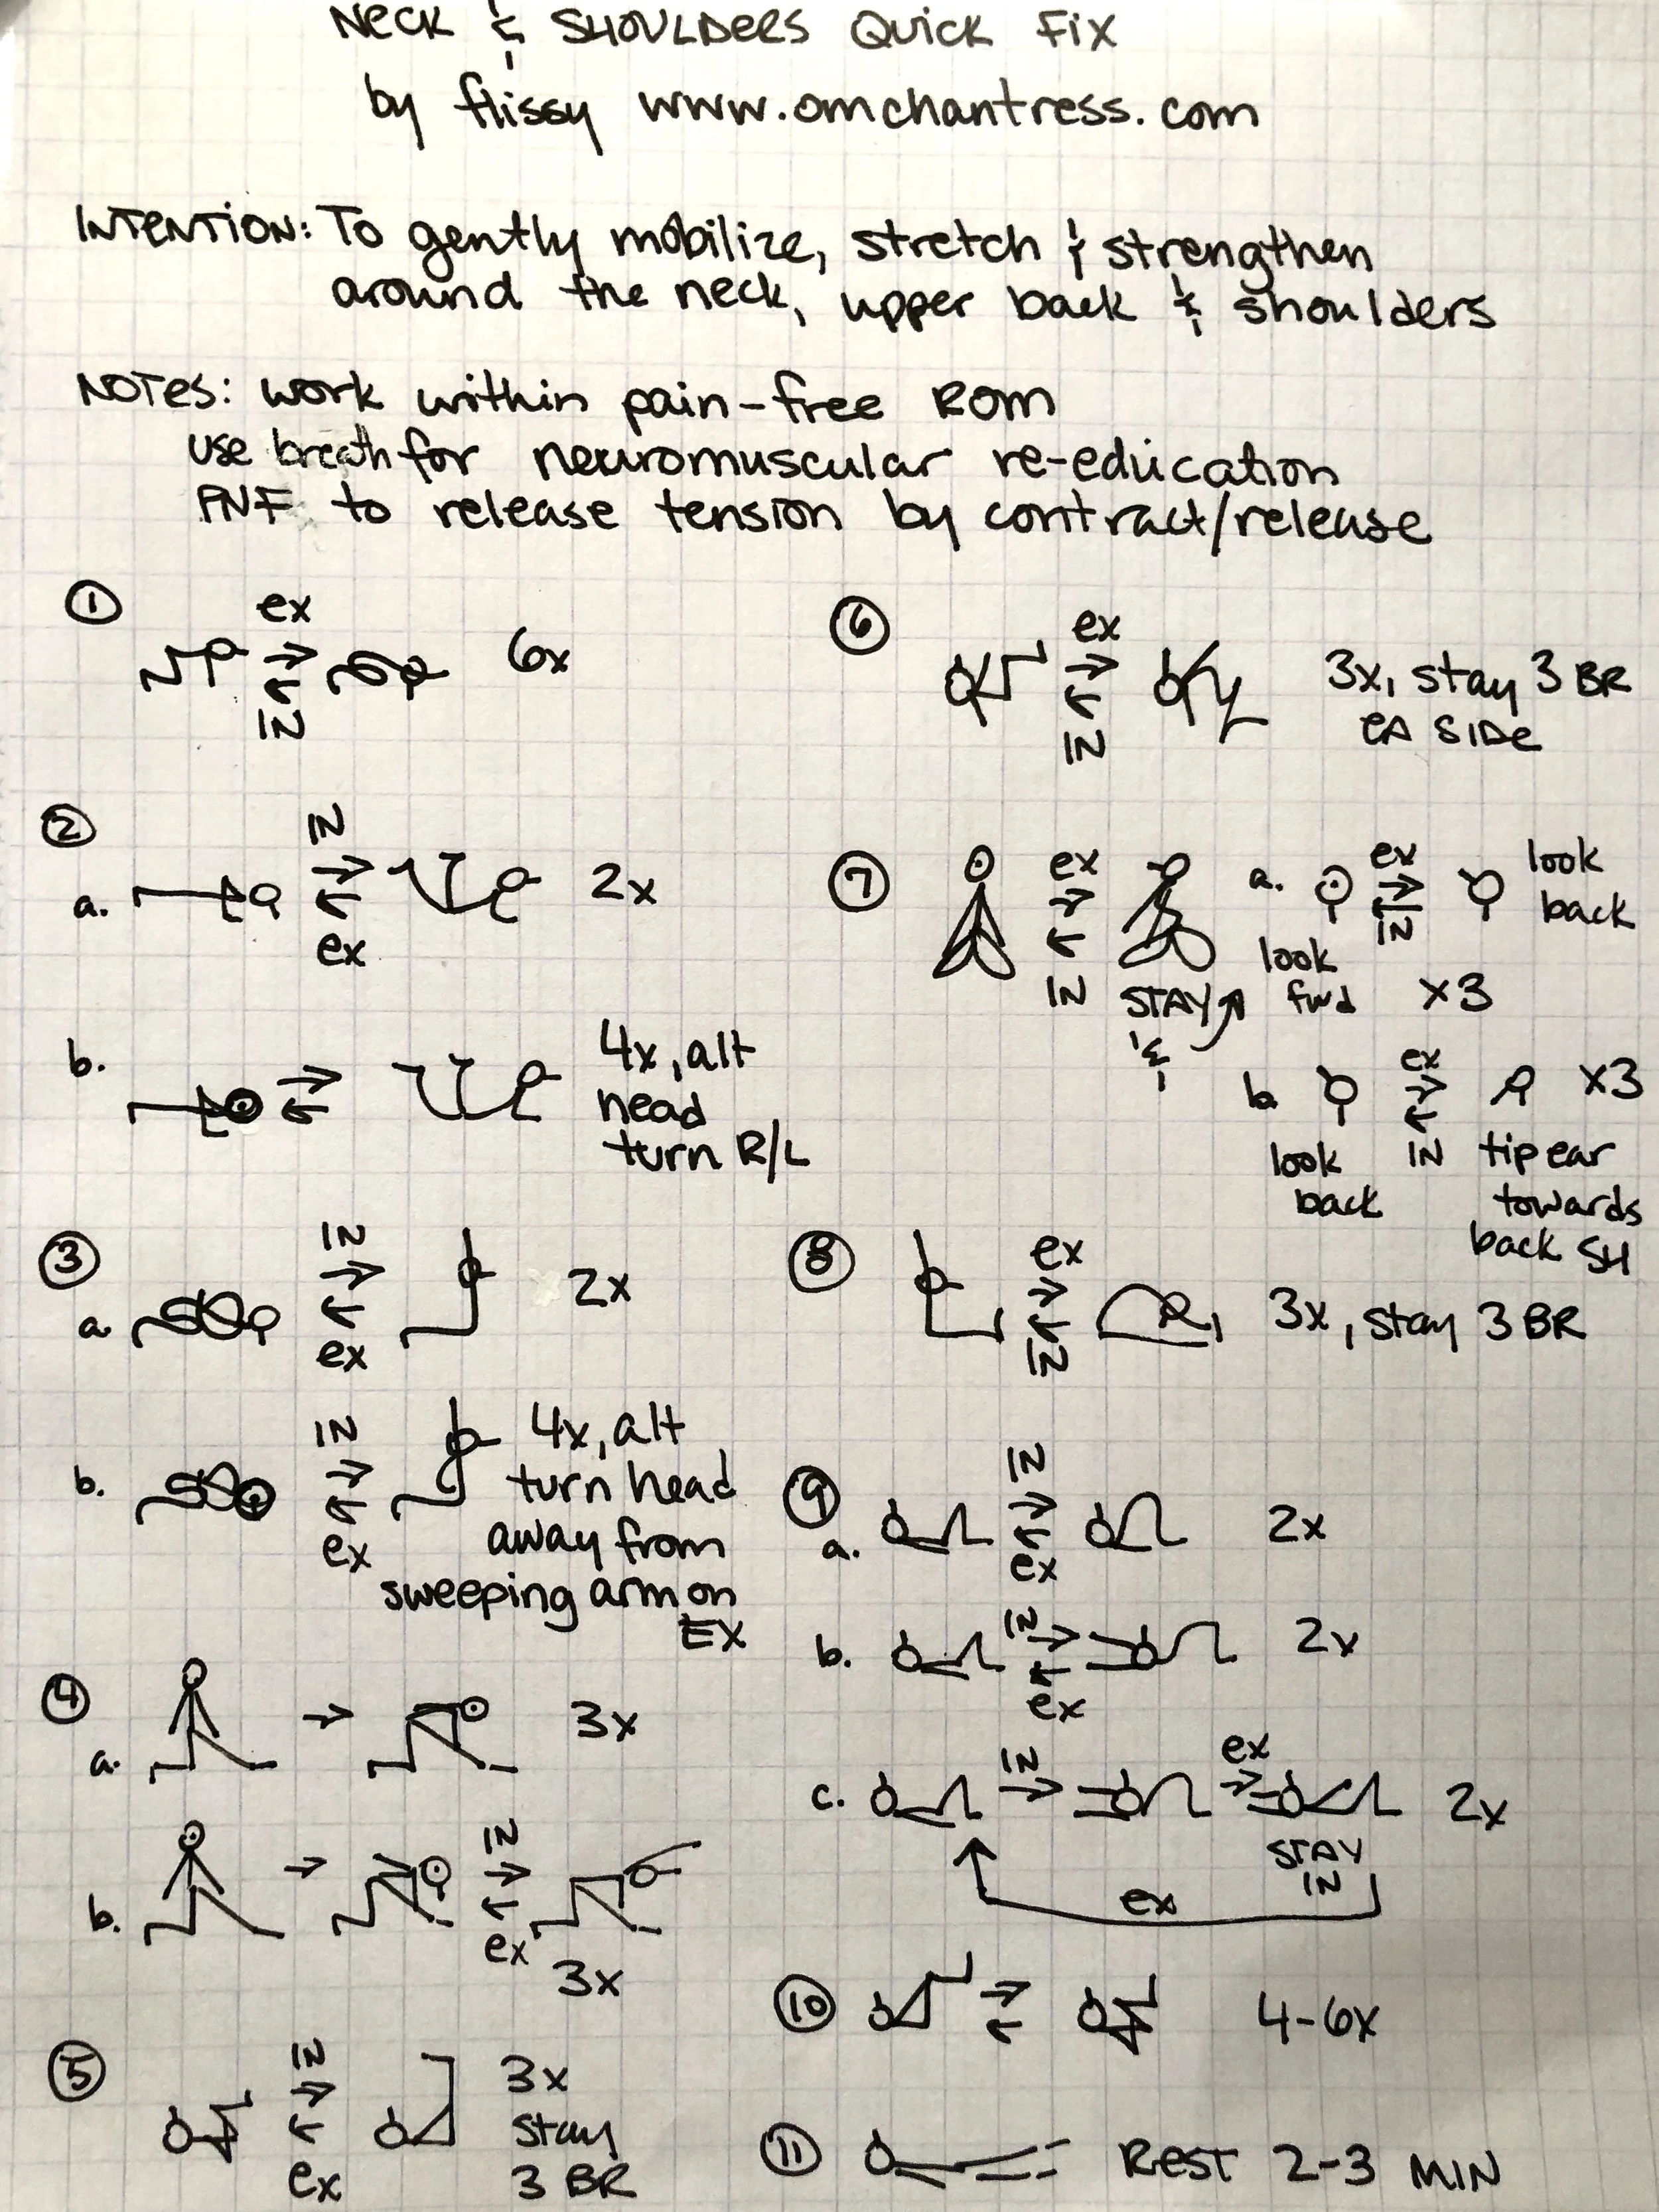 NECK & SHOULDERS QUICK FIX
by flissy www.omchantress.com
INTENTION: To gently mobilize, stretch & strengthen
around the neck, upper back & shoulders
NOTES: work within pain-free ROM
use breath for neuromuscular re-education
PNF to release tension by contract/release
1
ex
6x
IN
2
IN
a. 2x
ex
b. 4x, alt
head
turn R/L
3
IN
a. 2x
ex
b. IN 4x, alt
turn head
ex away from
sweeping arm on
EX
4
a. 3x
b. IN
ex
3x
5
IN 3x
stay
ex 3 BR
6
ex 3x, stay 3 BR
IN EA SIDE
7
ex a. ex look
back
IN look IN
STAY fwd x3
&
b. ex x3
look IN tip ear
back towards
back SH
8
ex
3x, stay 3 BR
IN
9
IN
a. 2x
ex
b. IN 2x
ex
c. IN ex 2x
STAY
IN
ex
10 4-6x
11 REST 2-3 MIN